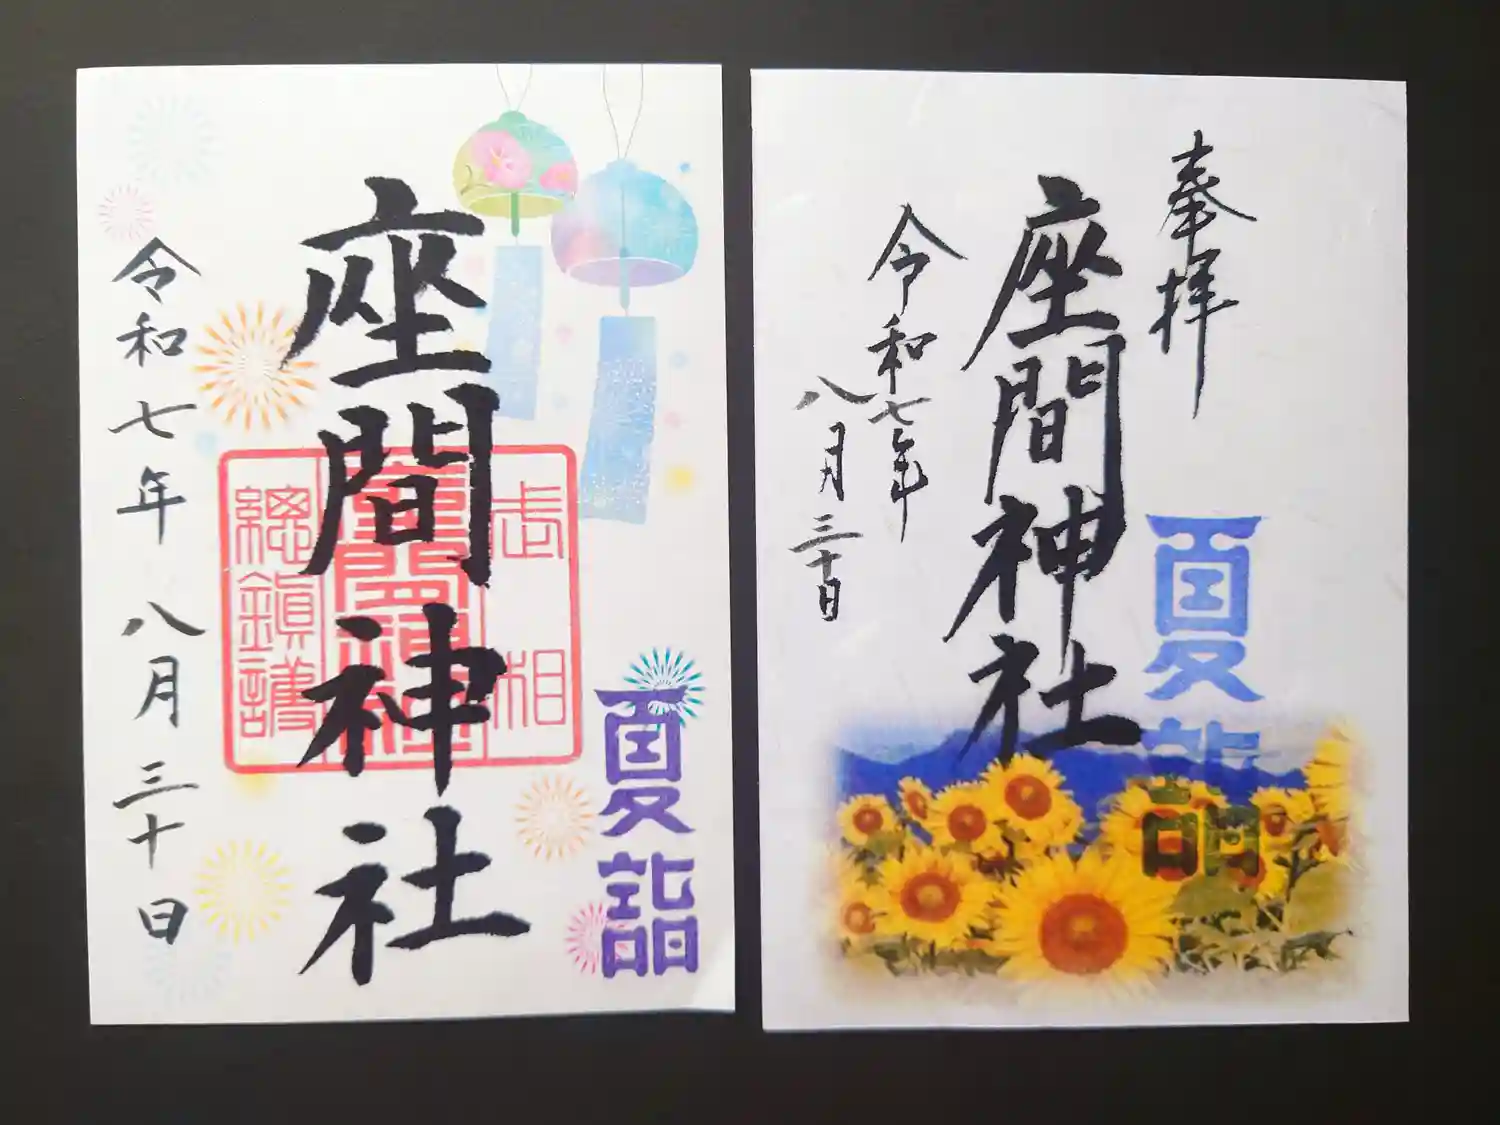 座間神社
令和七年八月三十日
相武
座間神社
總鎮護
夏詣
奉拝
座間神社
令和七年
八月三十日
夏詣